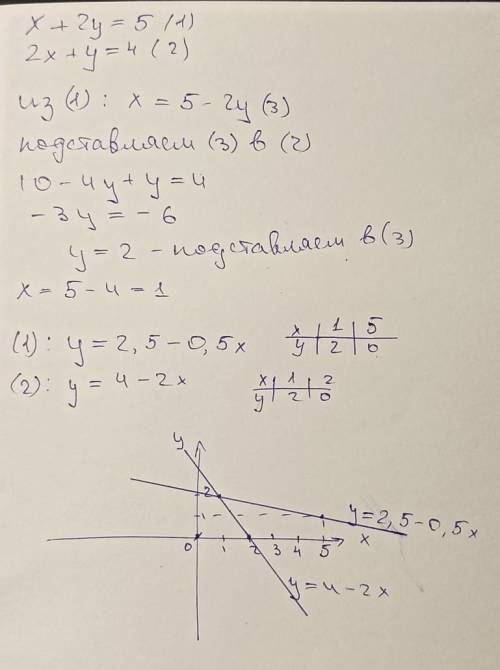 x + 2y = 5 (1)
2x + y = 4 (2)
из (1): x = 5 - 2y (3)
подставляем (3) в (2)
10 - 4y + y = 4
- 3y = - 6
y = 2 - подставляем в (3)
x = 5 - 4 = 1
(1): y = 2,5 - 0,5x
x | 1 | 5
y | 2 | 0
(2): y = 4 - 2x
x | 1 | 2
y | 2 | 0
y
2
1
y = 2,5 - 0,5x
0 1 2 3 4 5 x
y = 4 - 2x